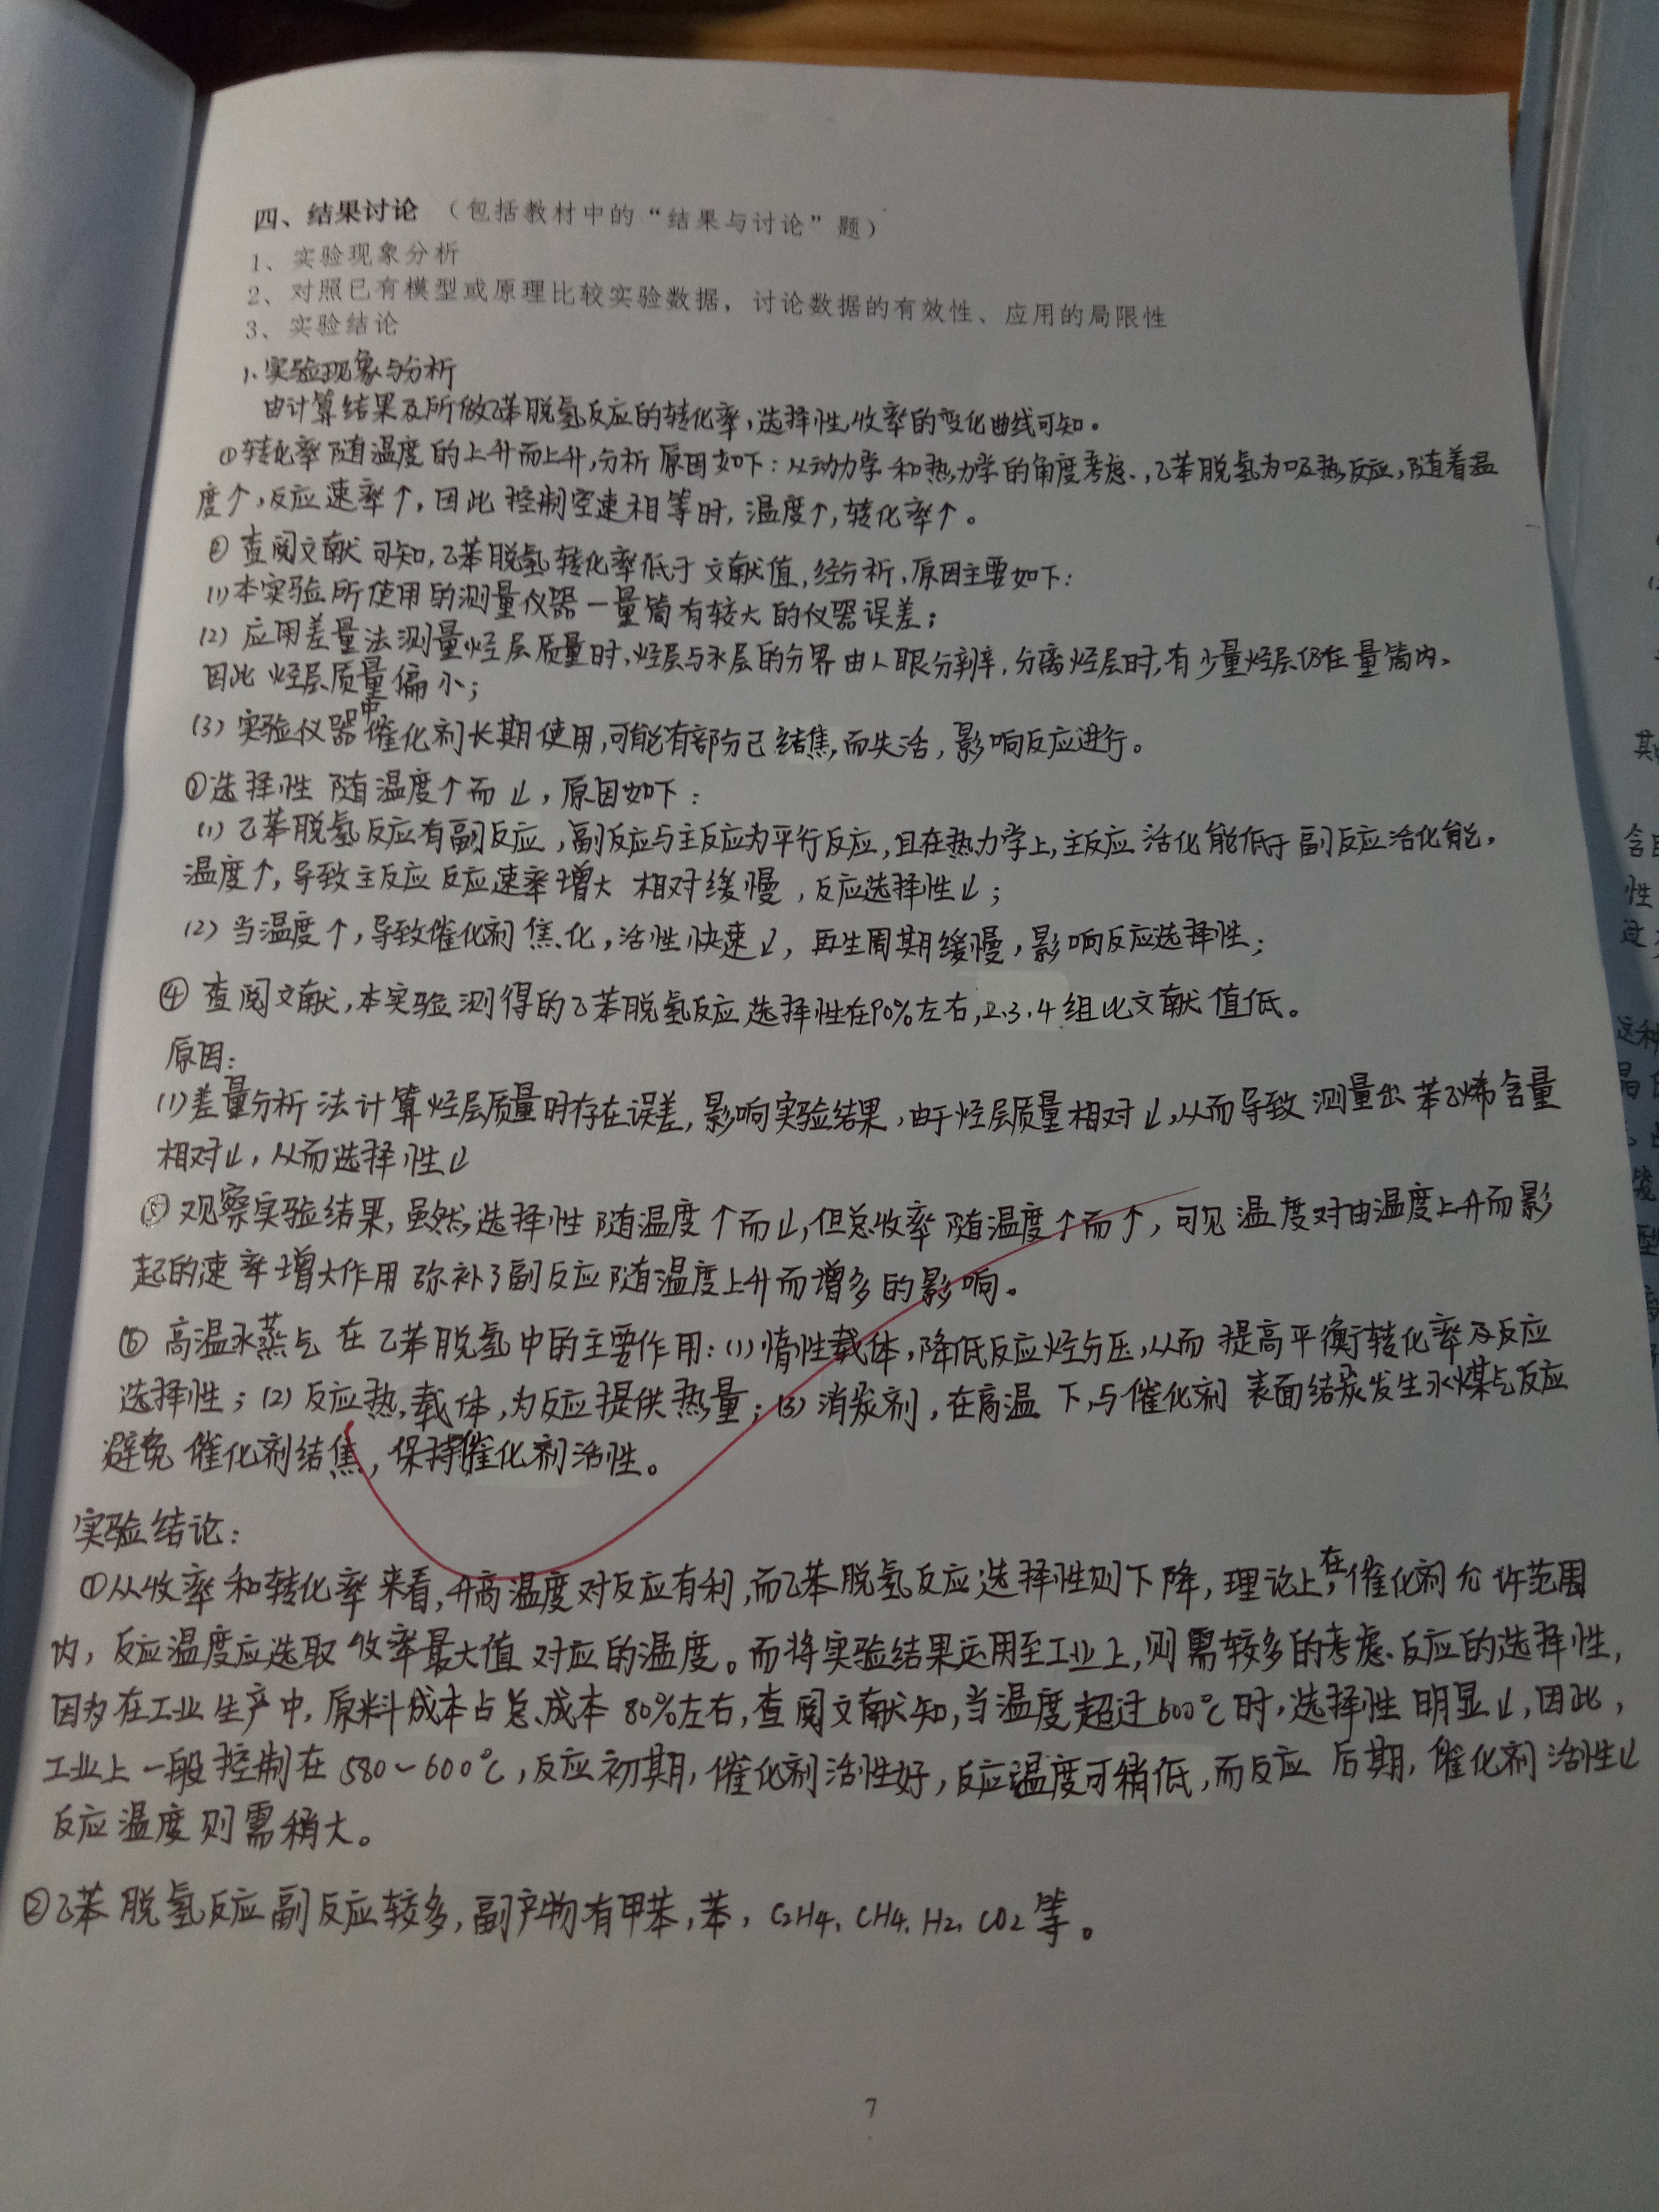 四、结果讨论 (包括教材中的“结果与讨论”题)
1、实验现象分析
2、对照已有模型或原理比较实验数据，讨论数据的有效性、应用的局限性
3、实验结论
1、实验现象与分析
由计算结果及所做乙苯脱氢反应的转化率，选择性，收率的变化曲线可知。
①转化率随温度的上升而上升，分析原因如下：从动力学和热力学的角度考虑，乙苯脱氢为吸热反应，随着温
度↑，反应速率↑，因此控制空速相等时，温度↑，转化率↑。
② 查阅文献可知，乙苯脱氢转化率低于文献值，经分析，原因主要如下：
(1)本实验所使用的测量仪器一量筒有较大的仪器误差；
(2) 应用差量法测量烃层质量时，烃层与水层的分界由人眼分辨，分离烃层时，有少量烃层仍在量筒内。
因此烃层质量偏小；
(3) 实验仪器中催化剂长期使用，可能有部分已结焦而失活，影响反应进行。
③选择性随温度↑而↓，原因如下：
(1) 乙苯脱氢反应有副反应，副反应与主反应为平行反应，且在热力学上，主反应活化能低于副反应活化能，
温度↑，导致主反应反应速率增大相对缓慢，反应选择性↓；
(2) 当温度↑，导致催化剂焦化，活性快速↓，再生周期缓慢，影响反应选择性；
④ 查阅文献，本实验测得的乙苯脱氢反应选择性在90%左右，2.3.4组比文献值低。
原因：
(1)差量分析法计算烃层质量时存在误差，影响实验结果，由于烃层质量相对↓，从而导致测量出苯乙烯含量
相对↓，从而选择性↓
⑤ 观察实验结果，虽然选择性随温度↑而↓，但总收率随温度↑而↑，可见温度对由温度上升而影
起的速率增大作用弥补了副反应随温度上升而增多的影响。
⑥ 高温水蒸气在乙苯脱氢中的主要作用：(1)惰性载体，降低反应烃分压，从而提高平衡转化率及反应
选择性；(2)反应热载体，为反应提供热量；(3)消炭剂，在高温下，与催化剂表面结炭发生水煤气反应
避免催化剂结焦，保持催化剂活性。
实验结论：
①从收率和转化率来看，升高温度对反应有利，而乙苯脱氢反应选择性则下降，理论上，在催化剂允许范围
内，反应温度应选取收率最大值对应的温度。而将实验结果运用至工业上，则需较多的考虑反应的选择性，
因为在工业生产中，原料成本占总成本80%左右，查阅文献知，当温度超过600℃时，选择性明显↓，因此，
工业上一般控制在580~600℃，反应初期，催化剂活性好，反应温度可稍低，而反应后期，催化剂活性↓
反应温度则需稍大。
②乙苯脱氢反应副反应较多，副产物有甲苯，苯，C2H4, CH4, H2, CO2等。
7